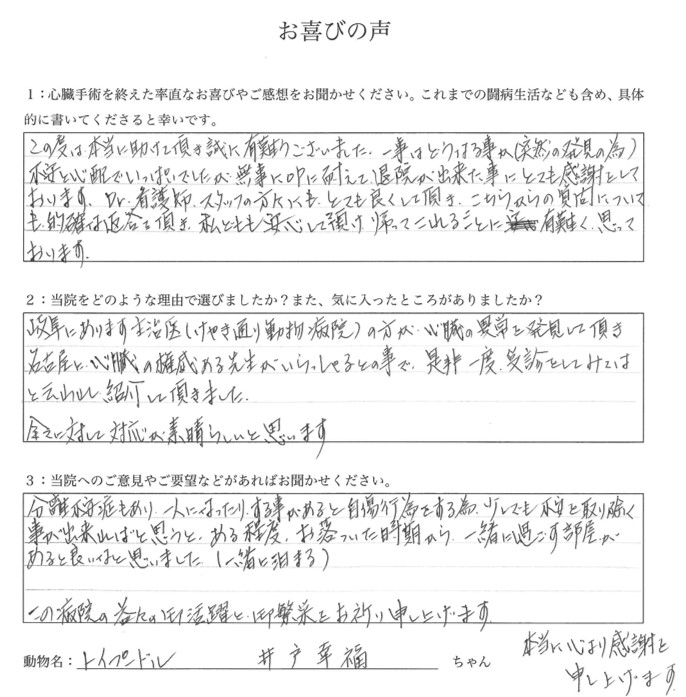 お喜びの声
1：心臓手術を終えた率直なお喜びやご感想をお聞かせください。これまでの闘病生活なども含め、具体
的に書いてくださると幸いです。
この度は本当に助けて頂き誠に有難うございました。一時はどうなる事か（突然の発見の為）
不安と心配でいっぱいでしたが無事にopに耐えて退院が出来た事にとても感謝をして
おります。Dr.看護師.スタッフの方々にも、とても良くして頂き、こちらからの質問について
も、的確な返答を頂き、私どもも安心して預け帰ってこれることに有難く思って
おります。
2：当院をどのような理由で選びましたか？また、気に入ったところがありましたか？
岐阜にあります主治医（けやき通り動物病院）の方が、心臓の異常を発見して頂き
名古屋に、心臓の権威ある先生がいらっしゃるとの事で、是非一度、受診をしてみては
と云われ紹介して頂きました。
全てに対して対応が素晴らしいと思います
3：当院へのご意見やご要望などがあればお聞かせください。
分離不安症もあり、一人になったりする事があると自傷行為をする為、少しでも不安を取り除く
事が出来ればと思うと、ある程度、お落ついた時期から、一緒に過ごす部屋が
あると良いなと思いました（一緒に泊まる）
この病院の益々の御活躍と御繁栄をお祈り申し上げます。
動物名：トイプードル 井戸幸福 ちゃん
本当に心より感謝を
申し上げます